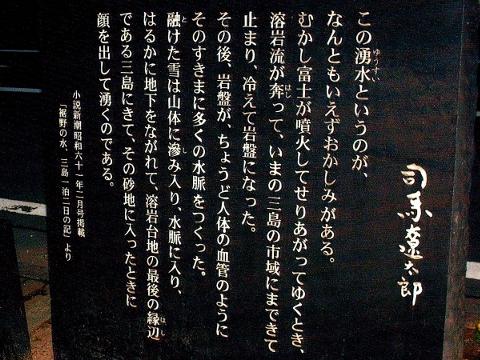 司馬遼太郎
この湧水というのが、
なんともいえずおかしみがある。
むかし富士が噴火してせりあがってゆくとき、
溶岩流が奔って、いまの三島の市域にまできて
止まり、冷えて岩盤になった。
その後、岩盤が、ちょうど人体の血管のように
そのすきまに多くの水脈をつくった。
融けた雪は山体に滲み入り、水脈に入り、
はるかに地下をながれて、溶岩台地の最後の縁辺
である三島にきて、その砂地に入ったときに
顔を出して湧くのである。
小説新潮昭和六十一年二月号掲載
「裾野の水、三島一泊二日の記」より